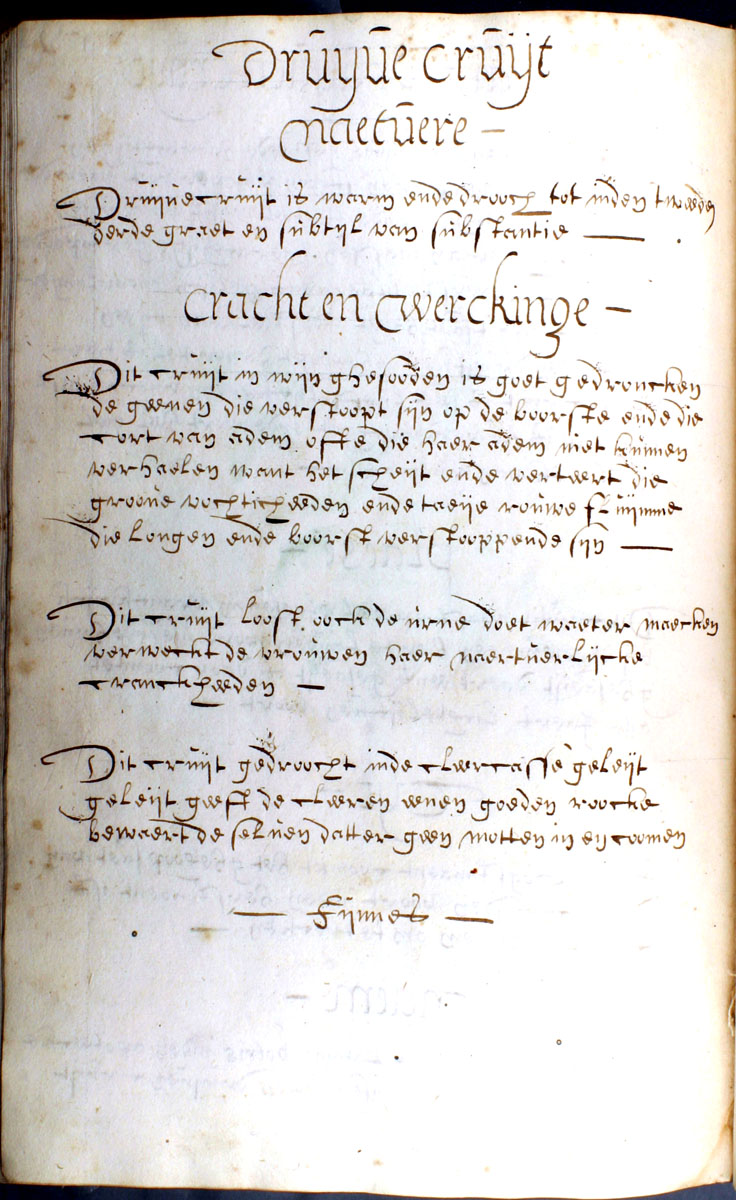 Drŭyŭe crŭijt
Naetŭere –
Drŭijŭecrŭijt is warm ende drooch tot inden tweeden
derde graet en sŭbtijl van sŭbstantie —
Cracht en Werckinge –
Dit crŭijt in wijn ghesooden is goet gedroncken
de geenen die verstoopt sijn op de boorste ende die
cort van adem offe die haer adem niet kŭnnen
verhaelen want het scheijt ende verteert die
groove vochticheeden ende taeije rouwe flŭijmme
die longen ende boorst verstooppende sijn —
Dit crŭijt loost oock de ŭrne doet waeter maecken
verweckt de vrouwen haer naertŭerlijcke
cranckheeden –
Dit crŭijt gedroocht inde cleercasse geleijt
geleijt geeft de cleeren eenen goeden roocke
bewaert de selven datter geen motten in en coomen
— Fijnnes —